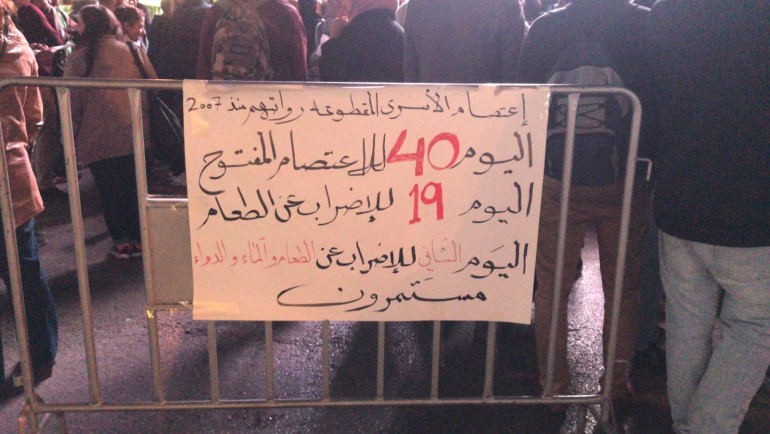 إعتصام الأسرى المقطوعه رواتهم منذ 2007
اليوم 40 للاعتصام المفتوح
اليوم 19 للإضراب عن الطعام
اليوم الثاني للإضراب عن الطعام والماء والدواء
مستمرون